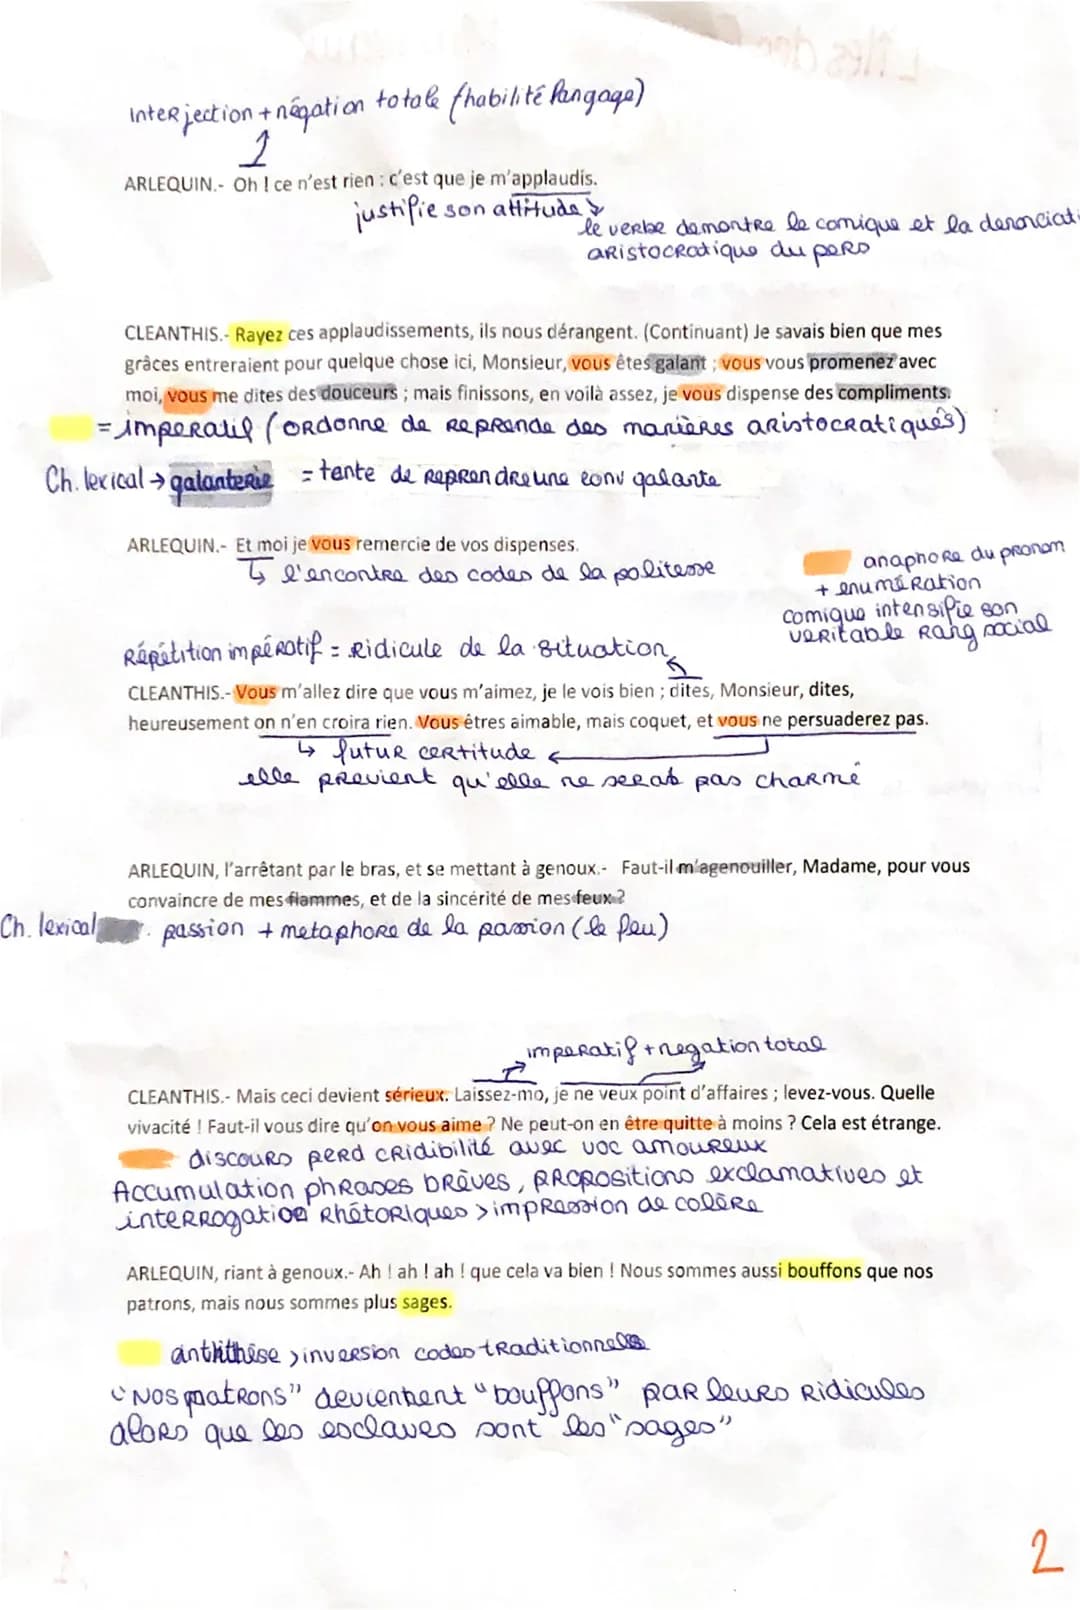 Interjection + négation totale (habilité langage)
ARLEQUIN.- Oh ! ce n'est rien : c'est que je m'applaudis.
justifie son attitude
le verbe demontre le comique et la denonciati
aristocratique du perso
CLEANTHIS.- Rayez ces applaudissements, ils nous dérangent. (Continuant) Je savais bien que mes
grâces entreraient pour quelque chose ici, Monsieur, vous êtes galant ; vous vous promenez avec
moi, vous me dites des douceurs ; mais finissons, en voilà assez, je vous dispense des compliments.
= imperatif (ordonne de reprende des manières aristocratiques)
Ch. lexical → galanterie = tente de reprendre une conv galante
ARLEQUIN.- Et moi je vous remercie de vos dispenses.
↳ l'encontre des codes de la politesse
anaphore du pronom
+ enumération
comique intensifie son
veritable rang social
Répétition impératif = ridicule de la situation
CLEANTHIS.- Vous m'allez dire que vous m'aimez, je le vois bien ; dites, Monsieur, dites,
heureusement on n'en croira rien. Vous êtres aimable, mais coquet, et vous ne persuaderez pas.
↳ futur certitude ←
elle previent qu'elle ne serat pas charmé
ARLEQUIN, l'arrêtant par le bras, et se mettant à genoux.- Faut-il m'agenouiller, Madame, pour vous
convaincre de mes flammes, et de la sincérité de mes feux ?
Ch. lexical passion + metaphore de la passion (le feu)
imperatif + negation total
CLEANTHIS.- Mais ceci devient sérieux. Laissez-mo, je ne veux point d'affaires ; levez-vous. Quelle
vivacité ! Faut-il vous dire qu'on vous aime ? Ne peut-on en être quitte à moins ? Cela est étrange.
discours perd cridibilité avec voc amoureux
Accumulation phrases brèves, propositions exclamatives et
interrogation rhétoriques > impression de colère
ARLEQUIN, riant à genoux.- Ah ! ah ! ah ! que cela va bien ! Nous sommes aussi bouffons que nos
patrons, mais nous sommes plus sages.
antithèse > inversion codes traditionnels
"Nos patrons" deviennent "bouffons" par leurs ridicules
alors que les esclaves sont les "sages"
2